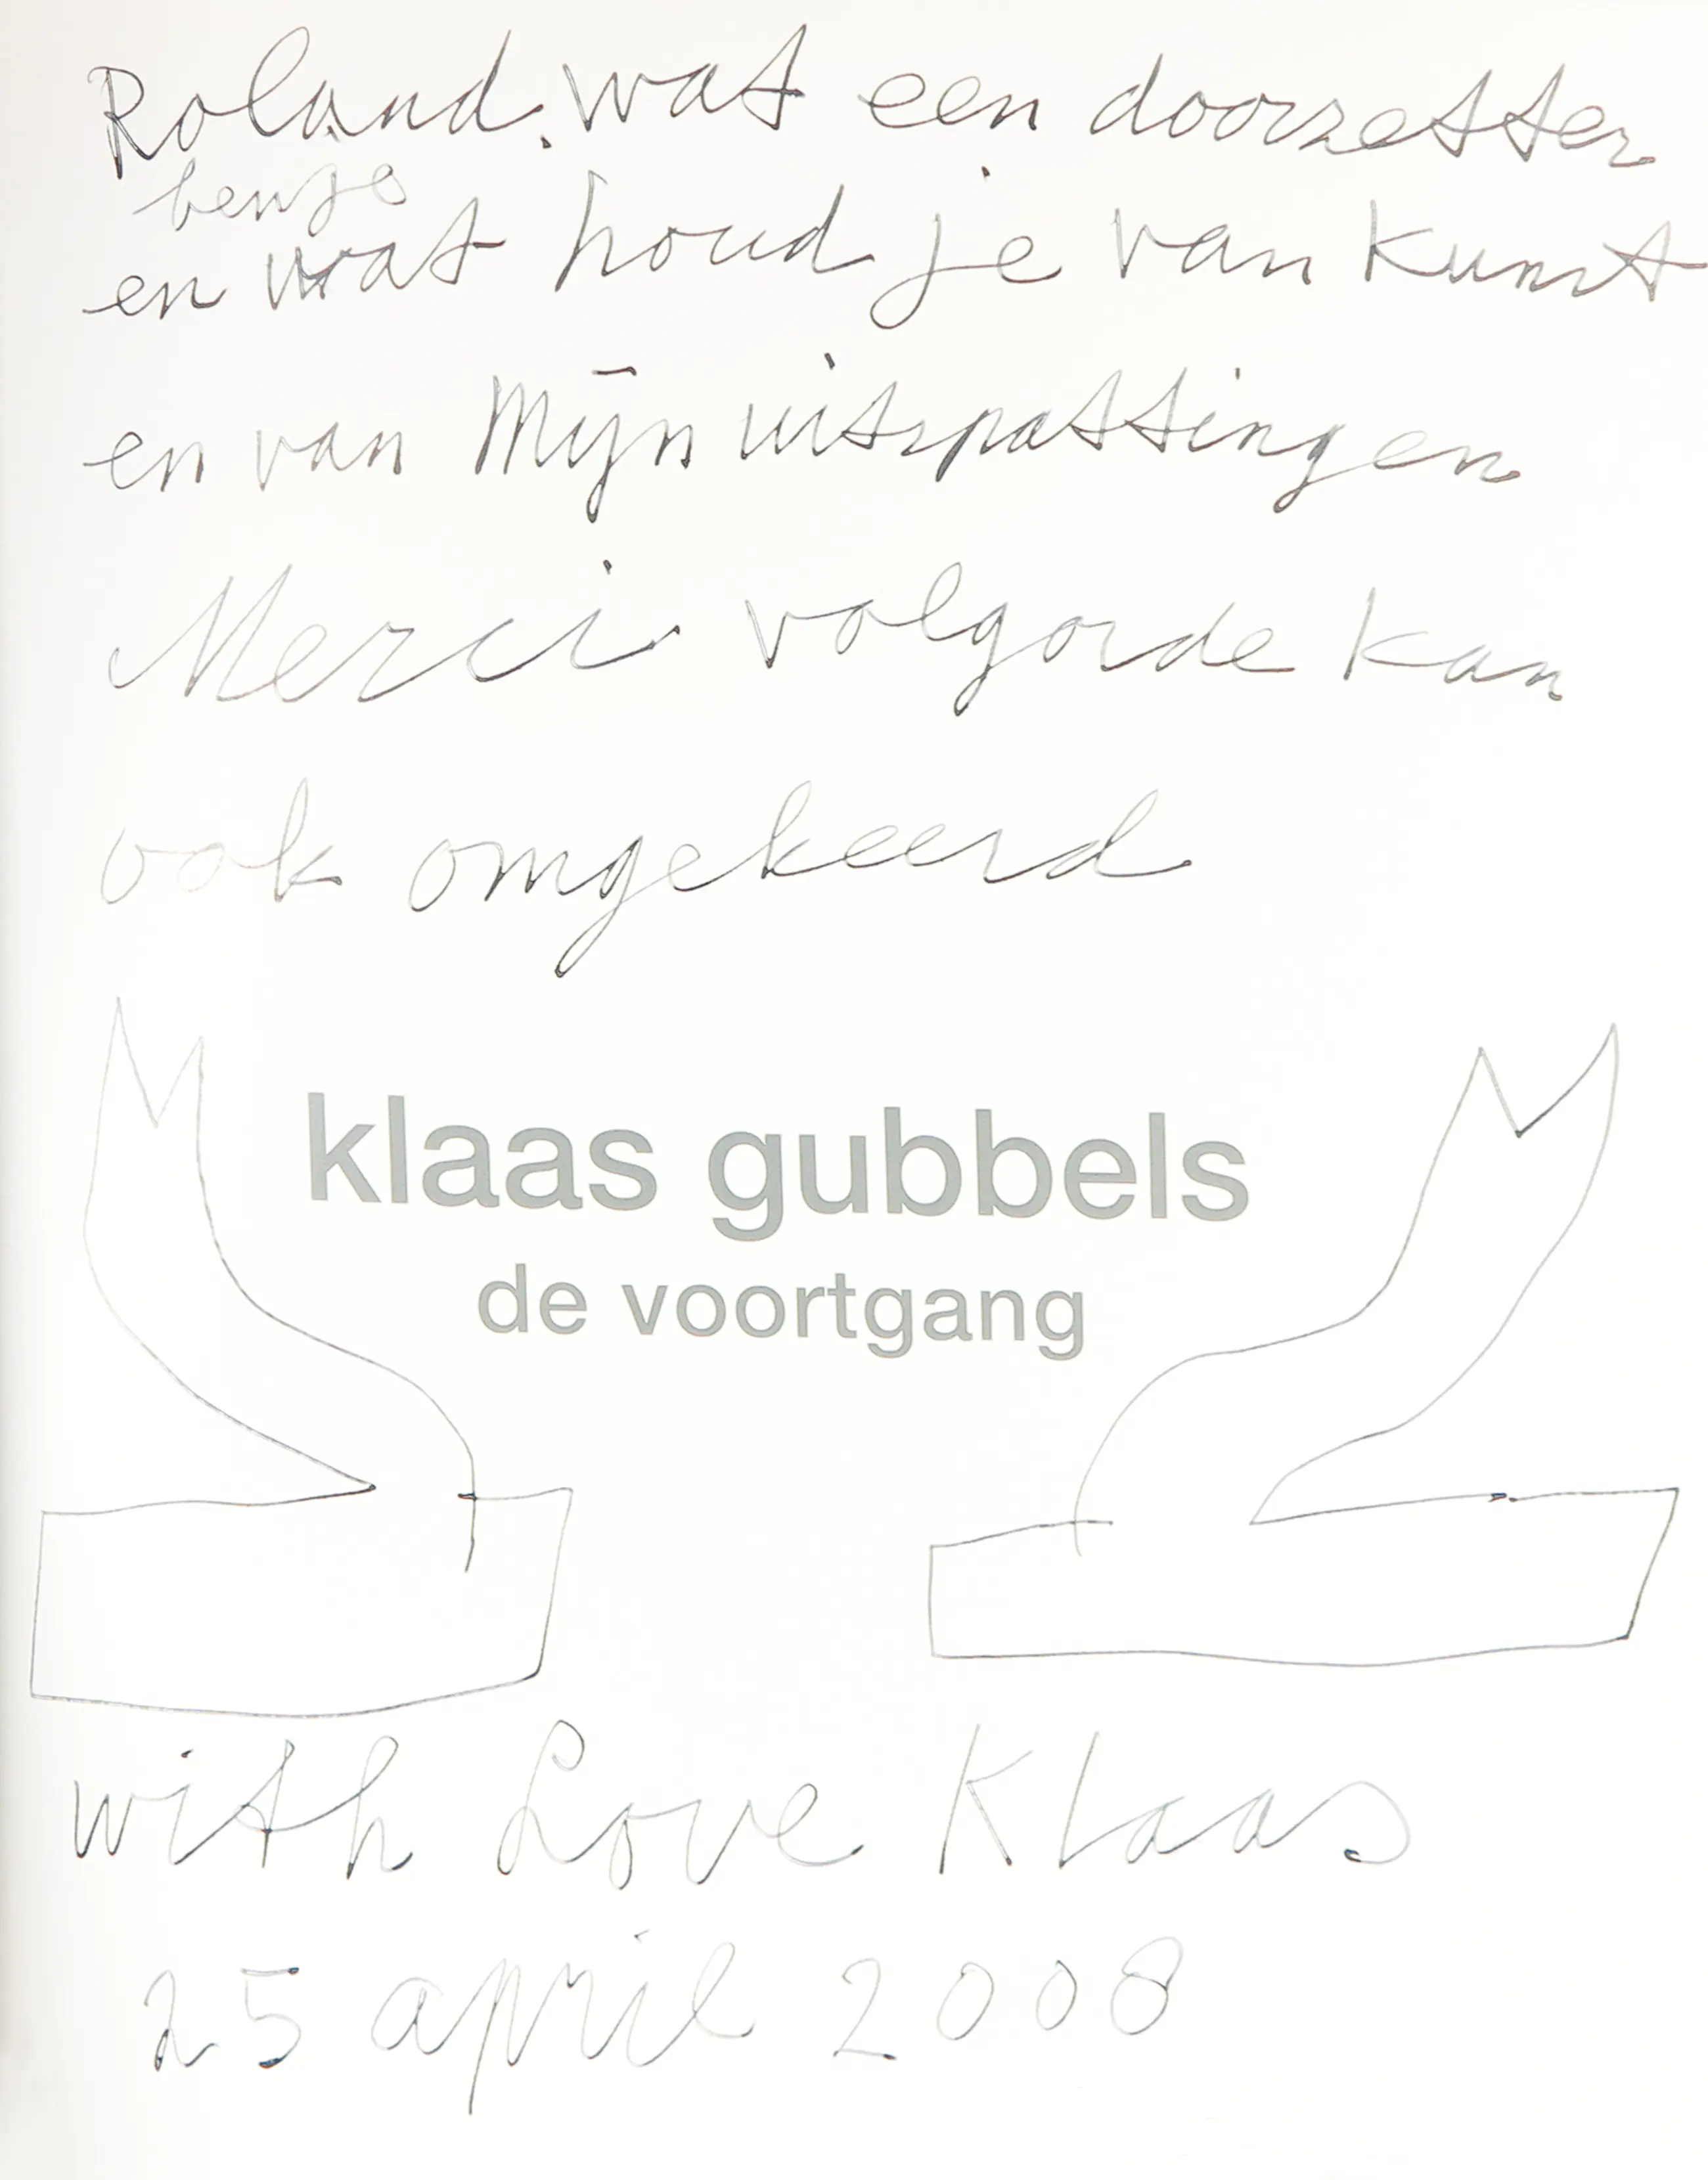 Roland. wat een doorzetter
ben je
en wat houd je van kunst
en van Mijn uitspattingen
Merci volgorde kan
ook omgekeerd
klaas gubbels
de voortgang
with Love Klaas
25 april 2008